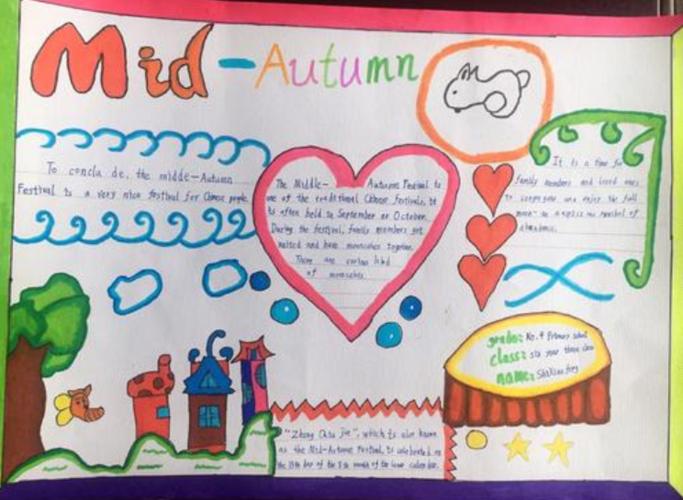 Mid-Autumn
To conclu de, the midde-Autumn
Festival is a very nice festival for Chinese people.
The Middle- Autumn Festival is
one of the traditional Chinese festivals, it
is often held in September or October.
During the festival, family members get
united and have mooncakes together.
There are various kind
of mooncakes.
It is a time for
family members and loved ones
to congregate and enjoy the full
moon- an auspicious symbol of
abundance.
grade: No.4 Primary school
class: six year three class
name:
"Zhong Qiu Jie", which is also known
as the Mid-Autumn Festival, is celebrated on
the 15th day of the 8th month of the lunar calendar.